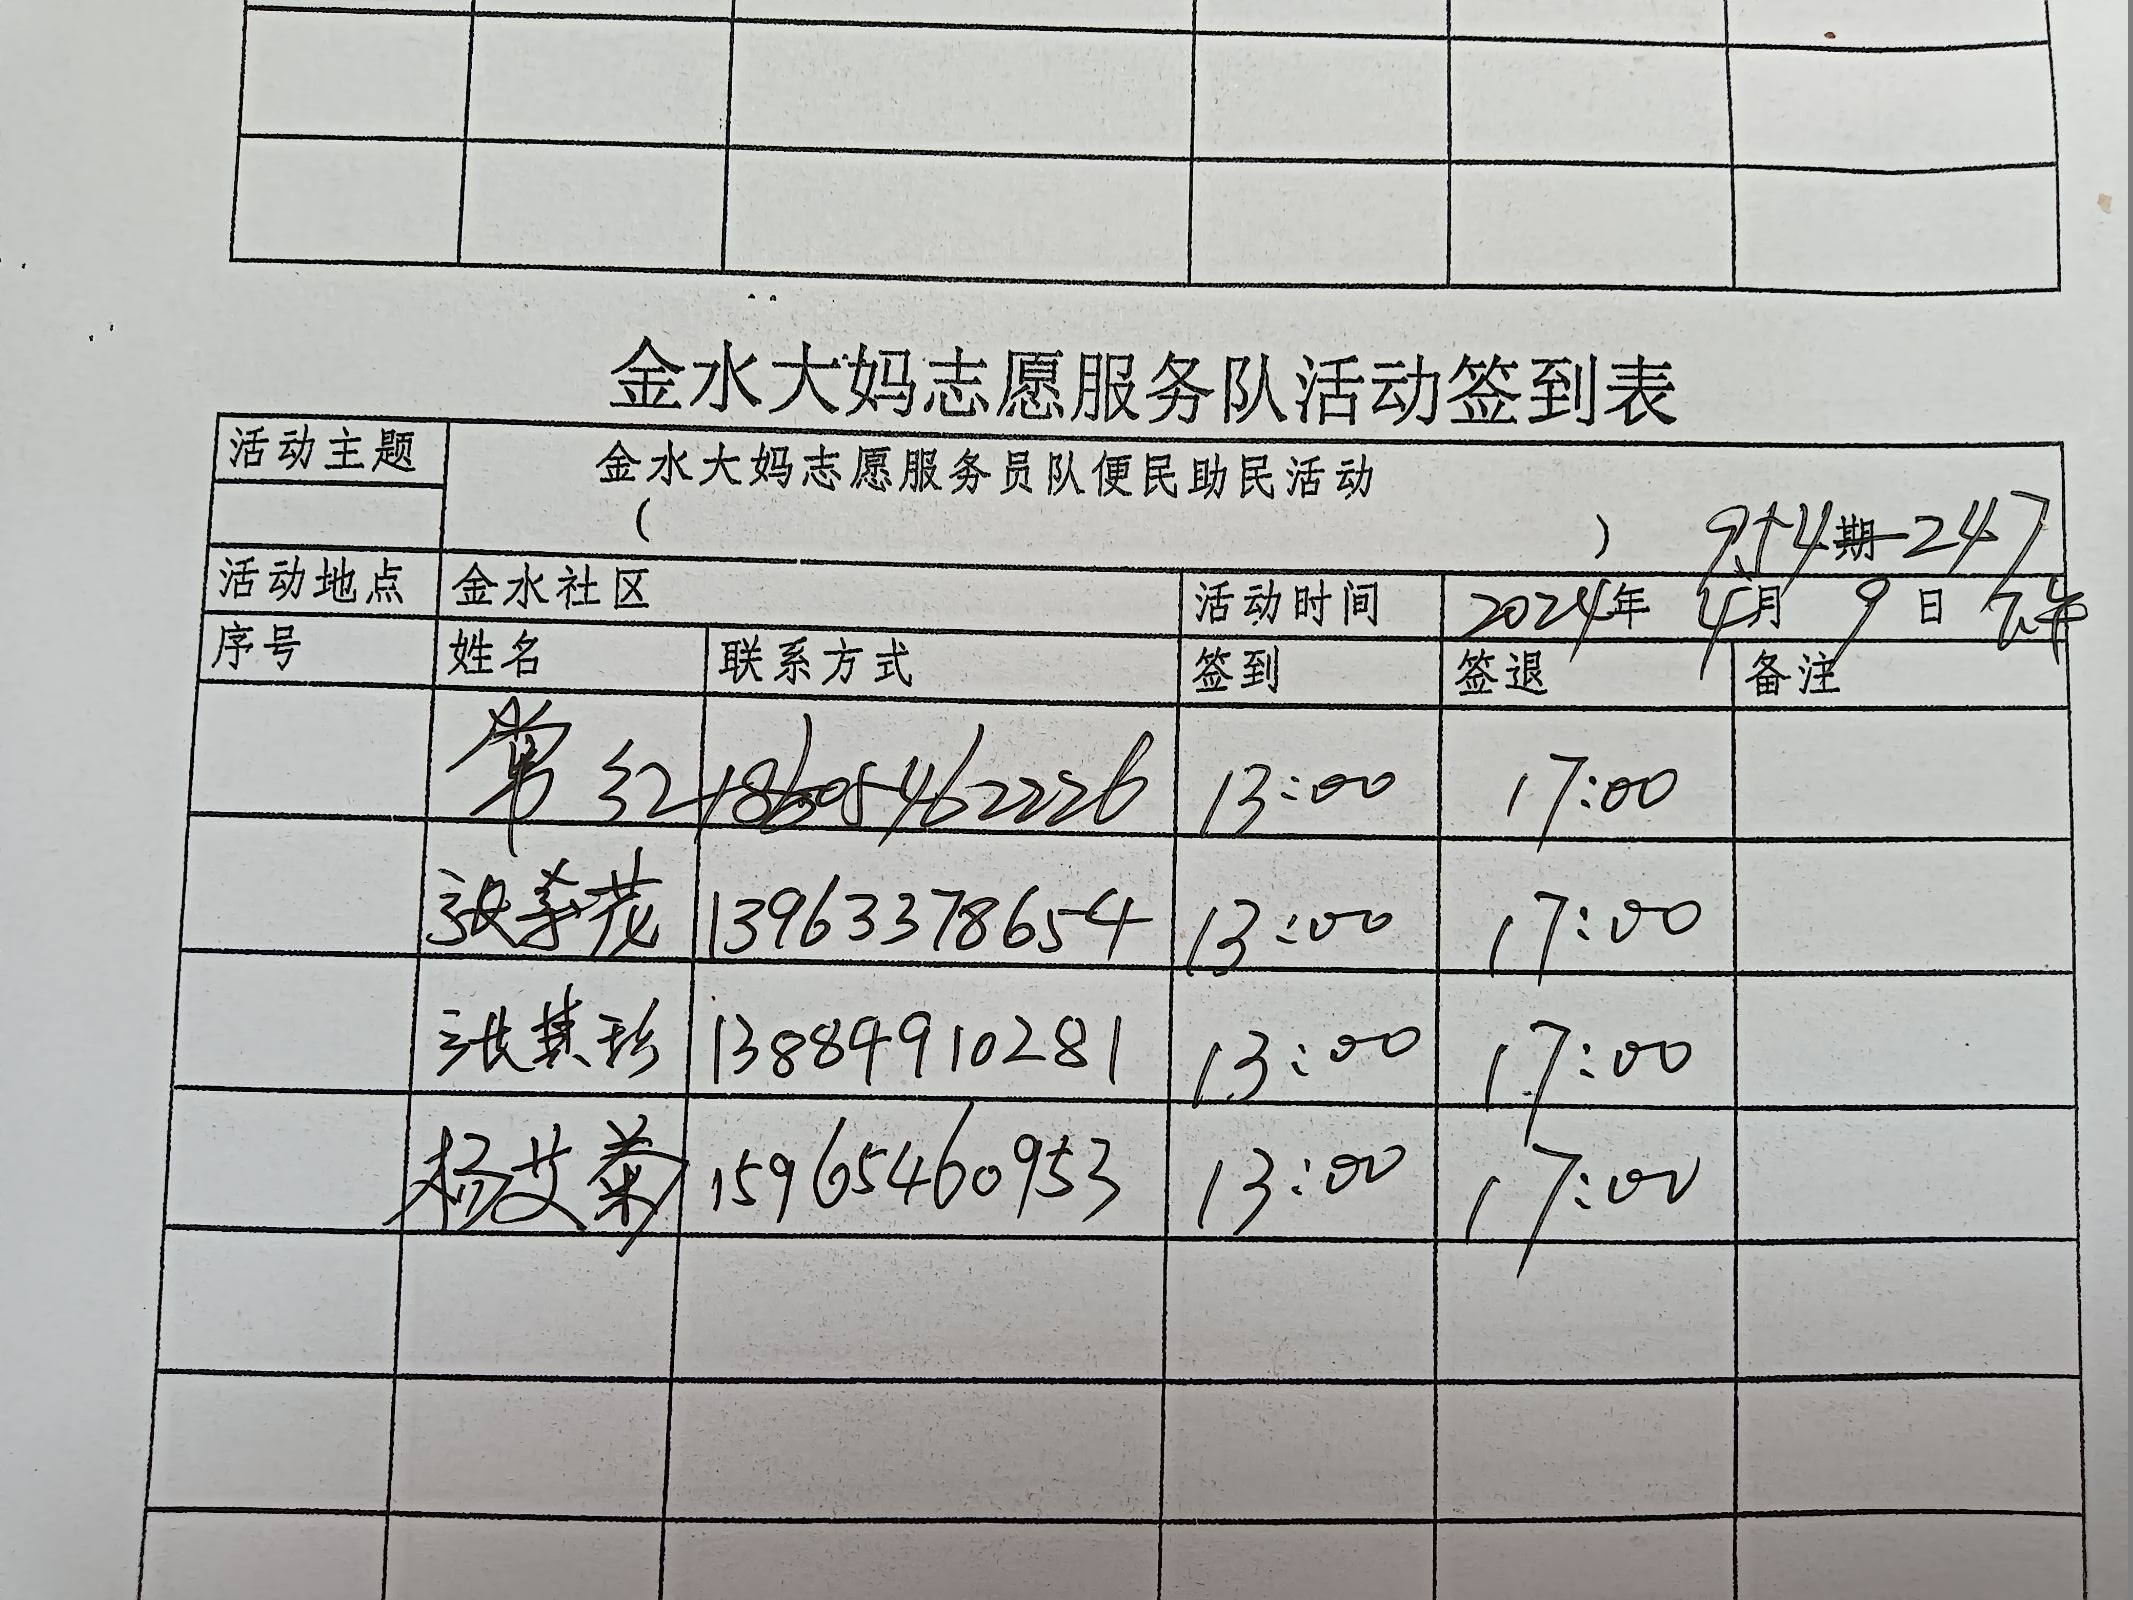 金水大妈志愿服务队活动签到表
活动主题 金水大妈志愿服务员队便民助民活动
( ) 9+4期-247
活动地点 金水社区 活动时间 2024年 4月 9日
序号 姓名 联系方式 签到 签退 备注
常红 18605462226 13:00 17:00
张 茂 13963378654 13:00 17:00
张其珍 13884910281 13:00 17:00
杨艾菊 15965460953 13:00 17:00